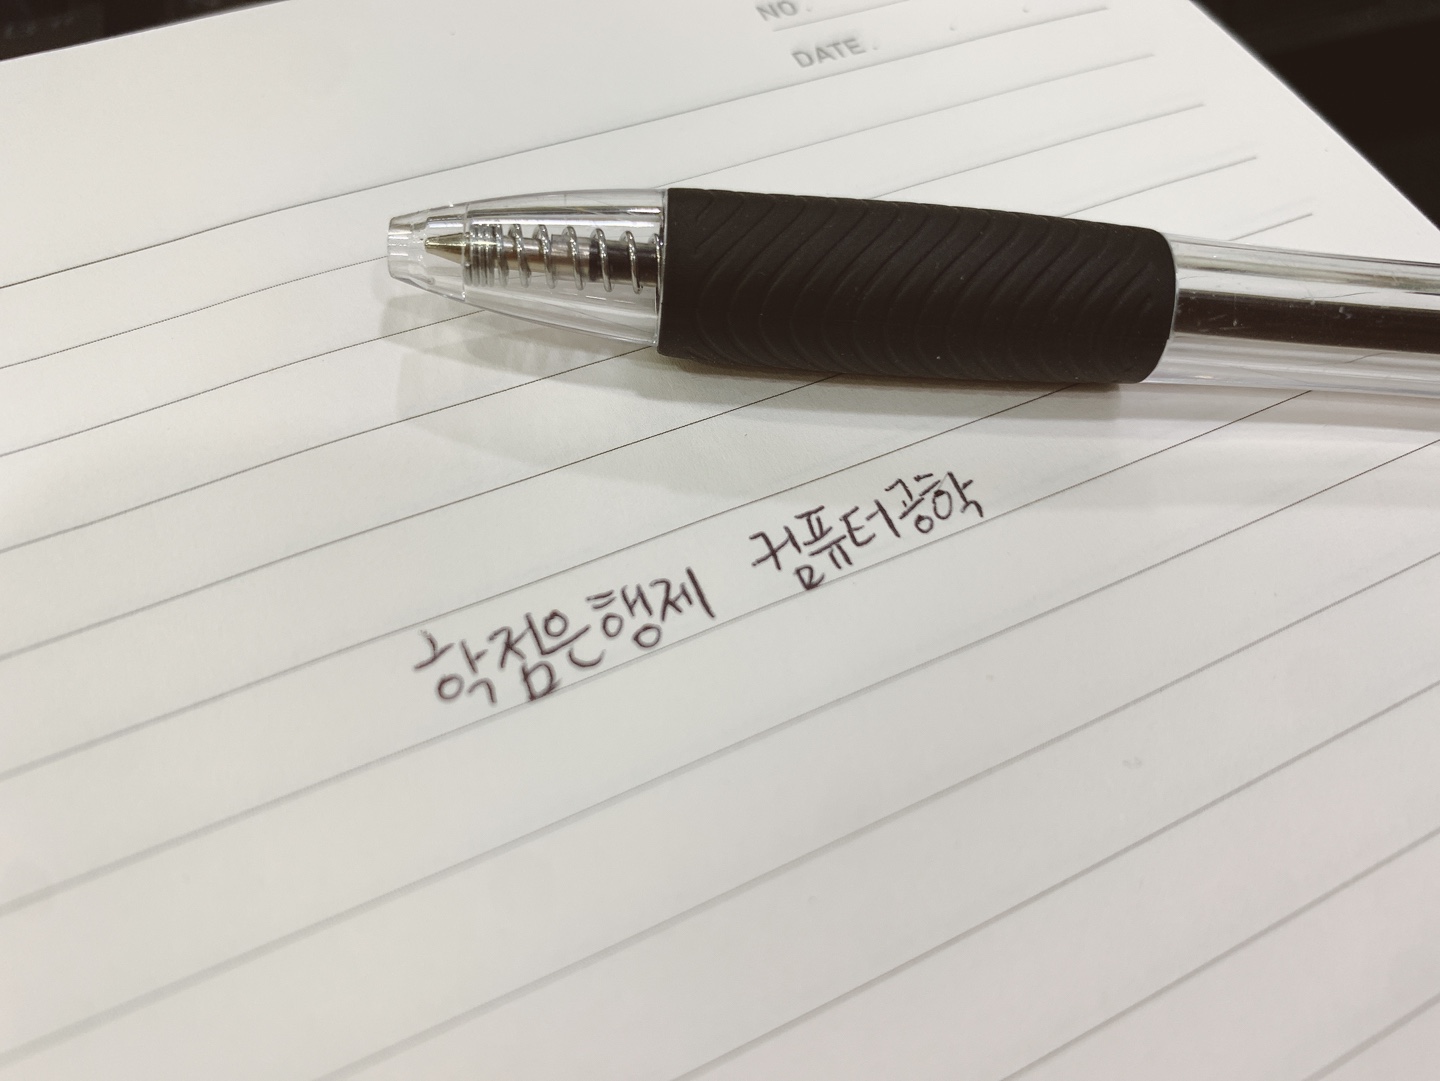 NO.
DATE.
학점은행제 컴퓨터공학